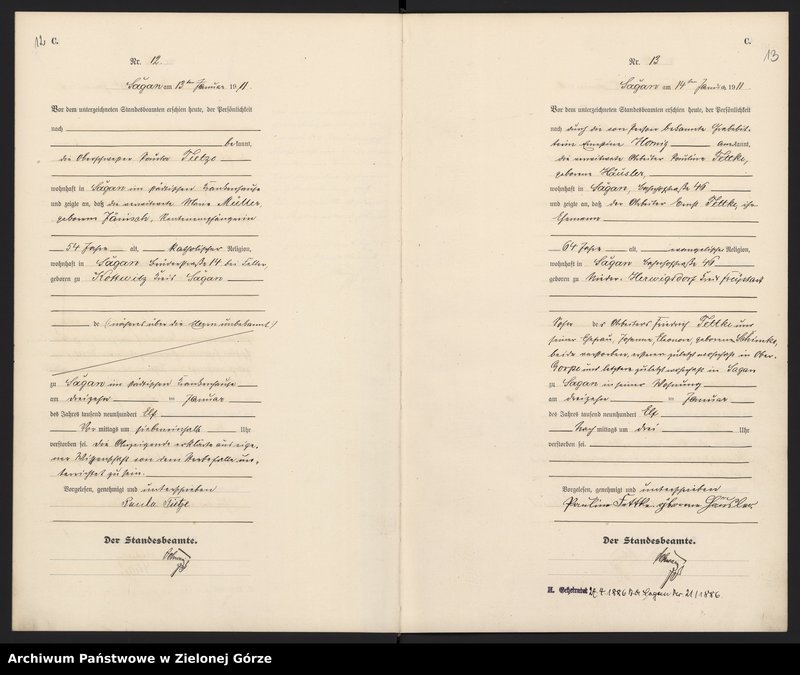 12 C.
Nr. 12.
Sagan am 13ten Januar 1911.
Vor dem unterzeichneten Standesbeamten erschien heute, der Persönlichkeit
nach
bekannt,
die Oberschwester Paula Tietze
wohnhaft in Sagan im städtischen Krankenhause
und zeigte an, daß die verwitwete Marie Müller,
geborene Jänisch, Rentenempfängerin
54 Jahre alt, katholischer Religion,
wohnhaft in Sagan Brüderstraße 14 bei Teller,
geboren zu Kottwitz Kreis Sagan
de (näheres über die Eltern unbekannt)
zu Sagan im städtischen Krankenhause
am dreizehn ten Januar
des Jahres tausend neunhundert Elf
Vor mittags um siebeneinhalb Uhr
verstorben sei. Die Anzeigende erklärte aus eige-
ner Wissenschaft von dem Sterbefalle un-
terrichtet zu sein.
Vorgelesen, genehmigt und unterschrieben
Paula Tietze
Der Standesbeamte.
C. 13
Nr. 13
Sagan am 14ten Januar 1911.
Vor dem unterzeichneten Standesbeamten erschien heute, der Persönlichkeit
nach durch die von Person bekannte
Honig anerkannt,
die verwitwete Arbeiter Pauline Fettke,
geborene Häusler,
wohnhaft in Sagan, Bahnhofstraße 46
und zeigte an, daß der Arbeiter Ernst Fettke, ihr
Ehemann
64 Jahre alt, evangelischer Religion,
wohnhaft in Sagan Bahnhofstraße 46
geboren zu Nieder-Herwigsdorf Kreis Freystadt
Sohn des Arbeiters Friedrich Fettke und
seiner Ehefrau, Johanne Eleonore, geborene
beide verstorben, ersterer zuletzt wohnhaft in Ober-
Gorpe und letztere zuletzt wohnhaft in Sagan
zu Sagan in seiner Wohnung
am dreizehn ten Januar
des Jahres tausend neunhundert Elf
Nach mittags um drei Uhr
verstorben sei.
Vorgelesen, genehmigt und unterschrieben
Pauline Fettke geborene Häusler
Der Standesbeamte.
H. Geheiratet 24.4.1886 StA Sagan Nr 21/1886.
Archiwum Państwowe w Zielonej Górze